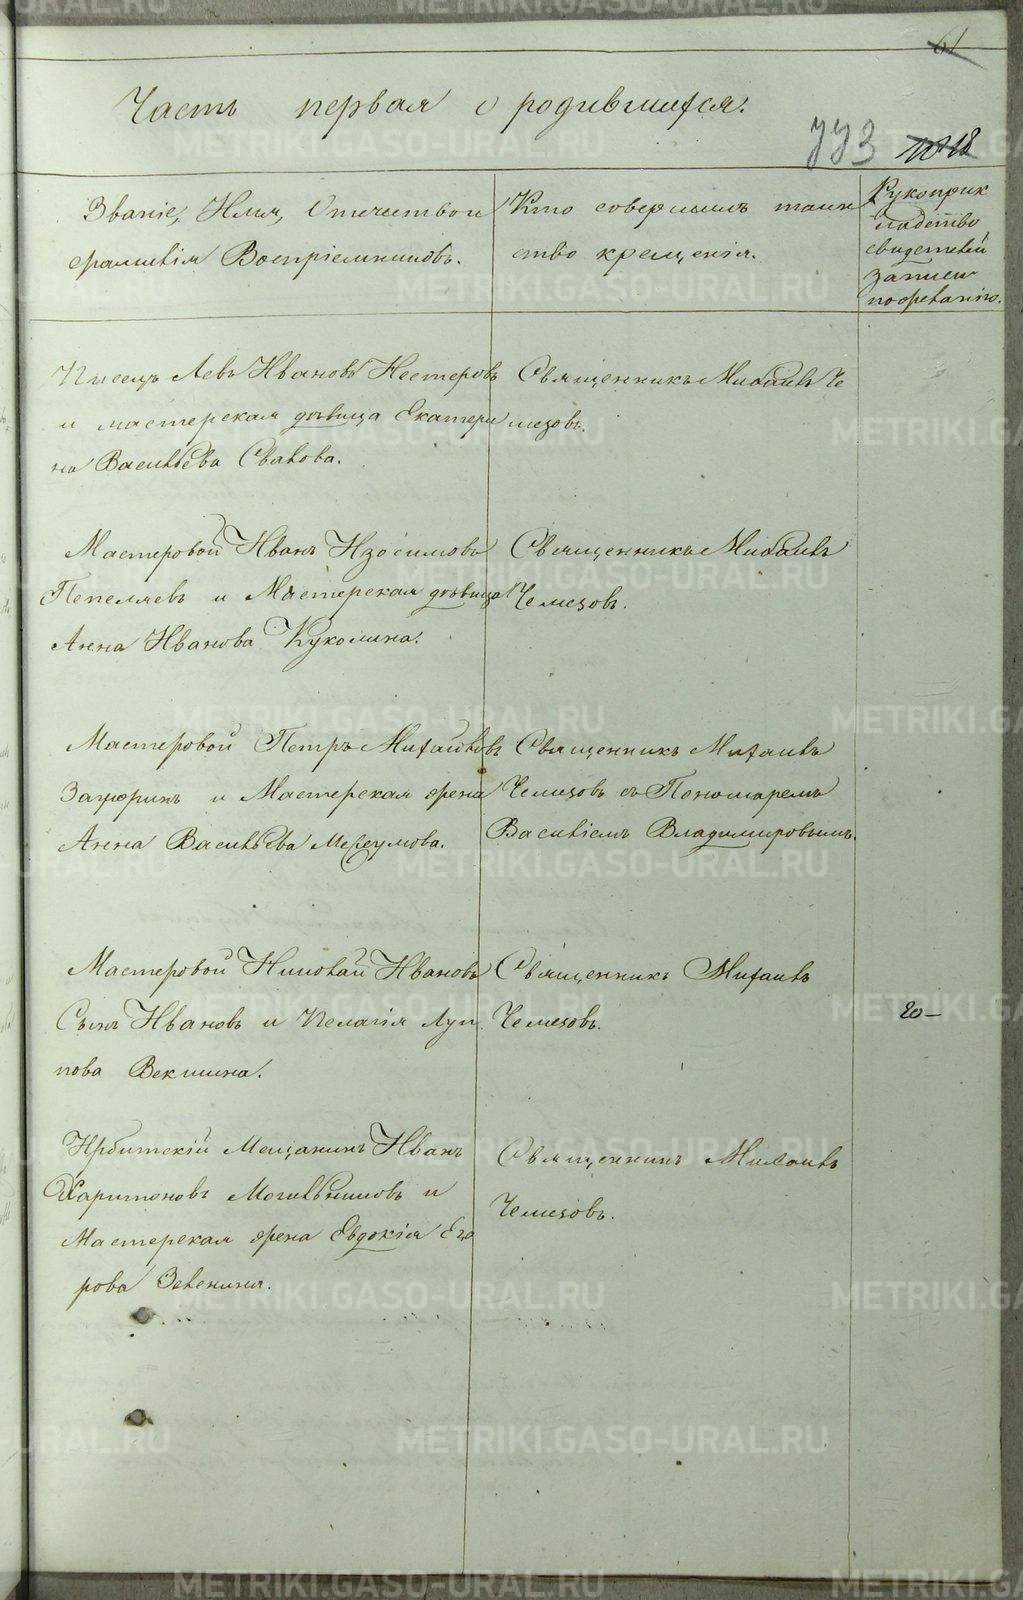 61
Часть первая о родившихся.
773 1018
Званіе, Имя, Отчество и
фамилія Воспріемниковъ.
Кто совершилъ таин
ство крещенія.
Рукоприк
ладство
свидетелей
записи
по желанію.
Писецъ Левъ Ивановъ Нестеровъ
и мастерская дѣвица Екатери
на Васильева
Священникъ Михаилъ Че
мезовъ.
Мастеровой Иванъ Изосимовъ
Пепеляевъ и Мастерская дѣвица
Анна Иванова Куколина.
Священникъ Михаилъ
Чемезовъ.
Мастеровой Петръ Михайловъ
и Мастерская жена
Анна Васильева
Священникъ Михаилъ
Чемезовъ съ Пономаремъ
Василіемъ Владимировымъ.
Мастеровой Николай Ивановъ
Сынъ Ивановъ и Пелагія Луп
пова Векшина.
Священникъ Михаилъ
Чемезовъ.
20-
Ирбитскій Мещанинъ Иванъ
Харитоновъ Могильниковъ и
Мастерская жена Евдокія Его
рова Зевенина.
Священникъ Михаилъ
Чемезовъ.
METRIKI.GASO-URAL.RU